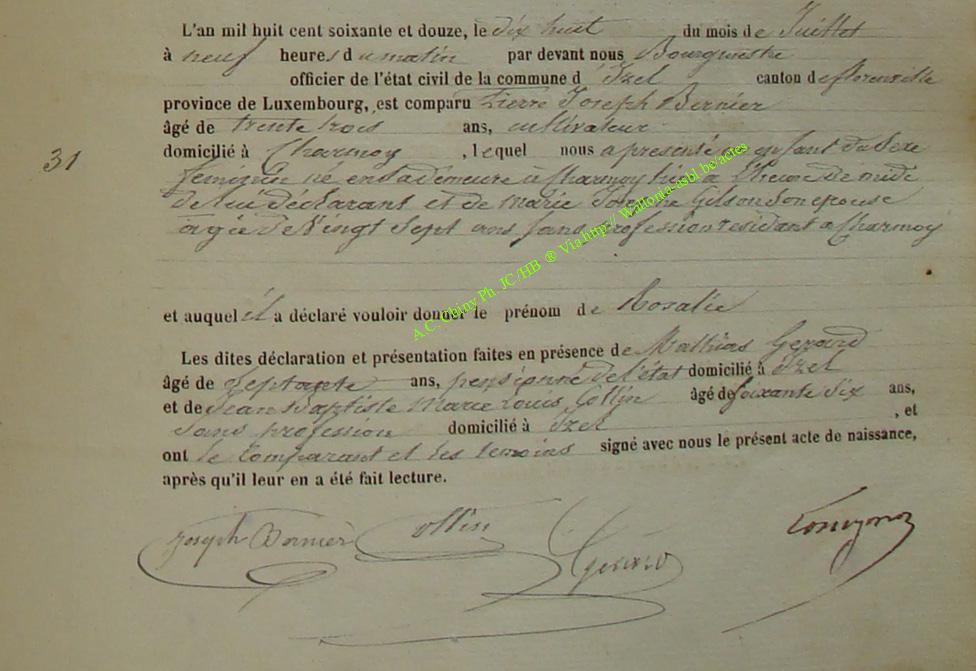 L'an mil huit cent soixante et douze, le dix huit du mois de Juillet
à neuf heures du matin par devant nous Bourgmestre
officier de l'état civil de la commune d'Izel canton de florenville
province de Luxembourg, est comparu Pierre Joseph Bernier
âgé de trente trois ans, cultivateur
31
domicilié à Charmoy, lequel nous a presenté un enfant du Sexe
feminin né en sa demeure à Charmoy hier a l'heure de midi
de lui déclarant et de Marie Gilson son epouse
agée de Vingt Sept ans Sans profession residant a Charmoy
et auquel il a déclaré vouloir donner le prénom de Rosalie
Les dites déclaration et présentation faites en présence de Mathias Gerard
âgé de Septante ans, pensionné de l'état domicilié à Izel
et de Jean Baptiste Marie Louis Collin âgé de Soixante Six ans,
Sans profession domicilié à Izel, et
ont le Comparant et les temoins signé avec nous le présent acte de naissance,
après qu'il leur en a été fait lecture.
Joseph Bernier Collin Gerard
A.C. Chiny Ph. JC/HB ® Via http://Wallonia-asbl.be/actes